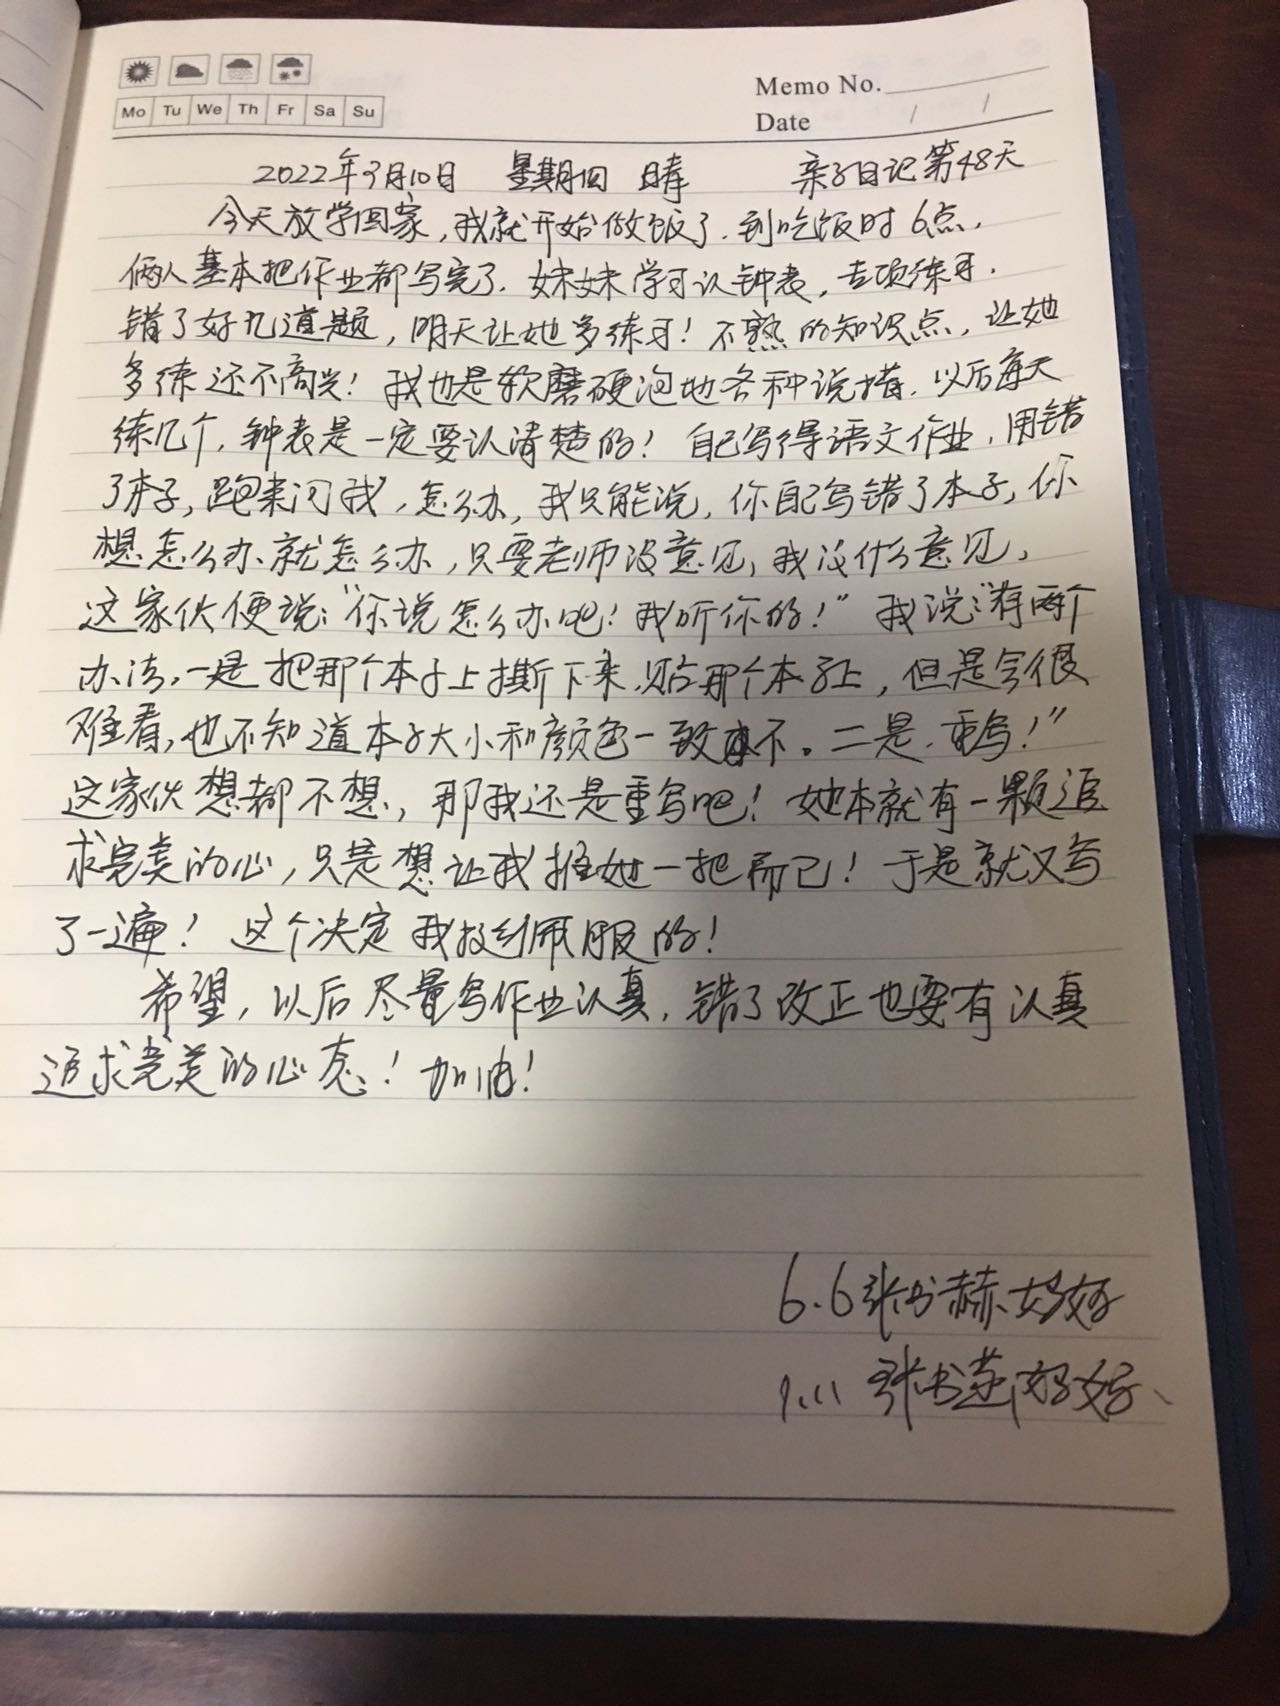 Mo Tu We Th Fr Sa Su
Memo No.
Date / /
2022年3月10日 星期四 晴 亲子日记第48天
今天放学回家,我就开始做饭了.到吃饭时6点,
俩人基本把作业都写完了.妹妹学习认钟表,专项练习.
错了好几道题,明天让她多练习!不熟的知识点,让她
多练还不高兴!我也是软磨硬泡地各种说措.以后每天
练几个,钟表是一定要认清楚的!自己写得语文作业,用错
了本子,跑来问我,怎么办,我只能说,你自己写错了本子,你
想怎么办就怎么办,只要老师没意见,我没什么意见,
这家伙便说:"你说怎么办吧!我听你的!"我说:"有两个
办法,一是把那个本子上撕下来,贴那个本子上,但是会很
难看,也不知道本子大小和颜色一致不。二是.重写!"
这家伙想都不想,那我还是重写吧!她本就有一颗追
求完美的心,只是想让我推她一把而已!于是就又写
了一遍!这个决定我挺佩服的!
希望,以后尽量写作业认真,错了改正也要有认真
追求完美的心态!加油!
6.6张书赫妈妈
1.11 张书莲妈妈